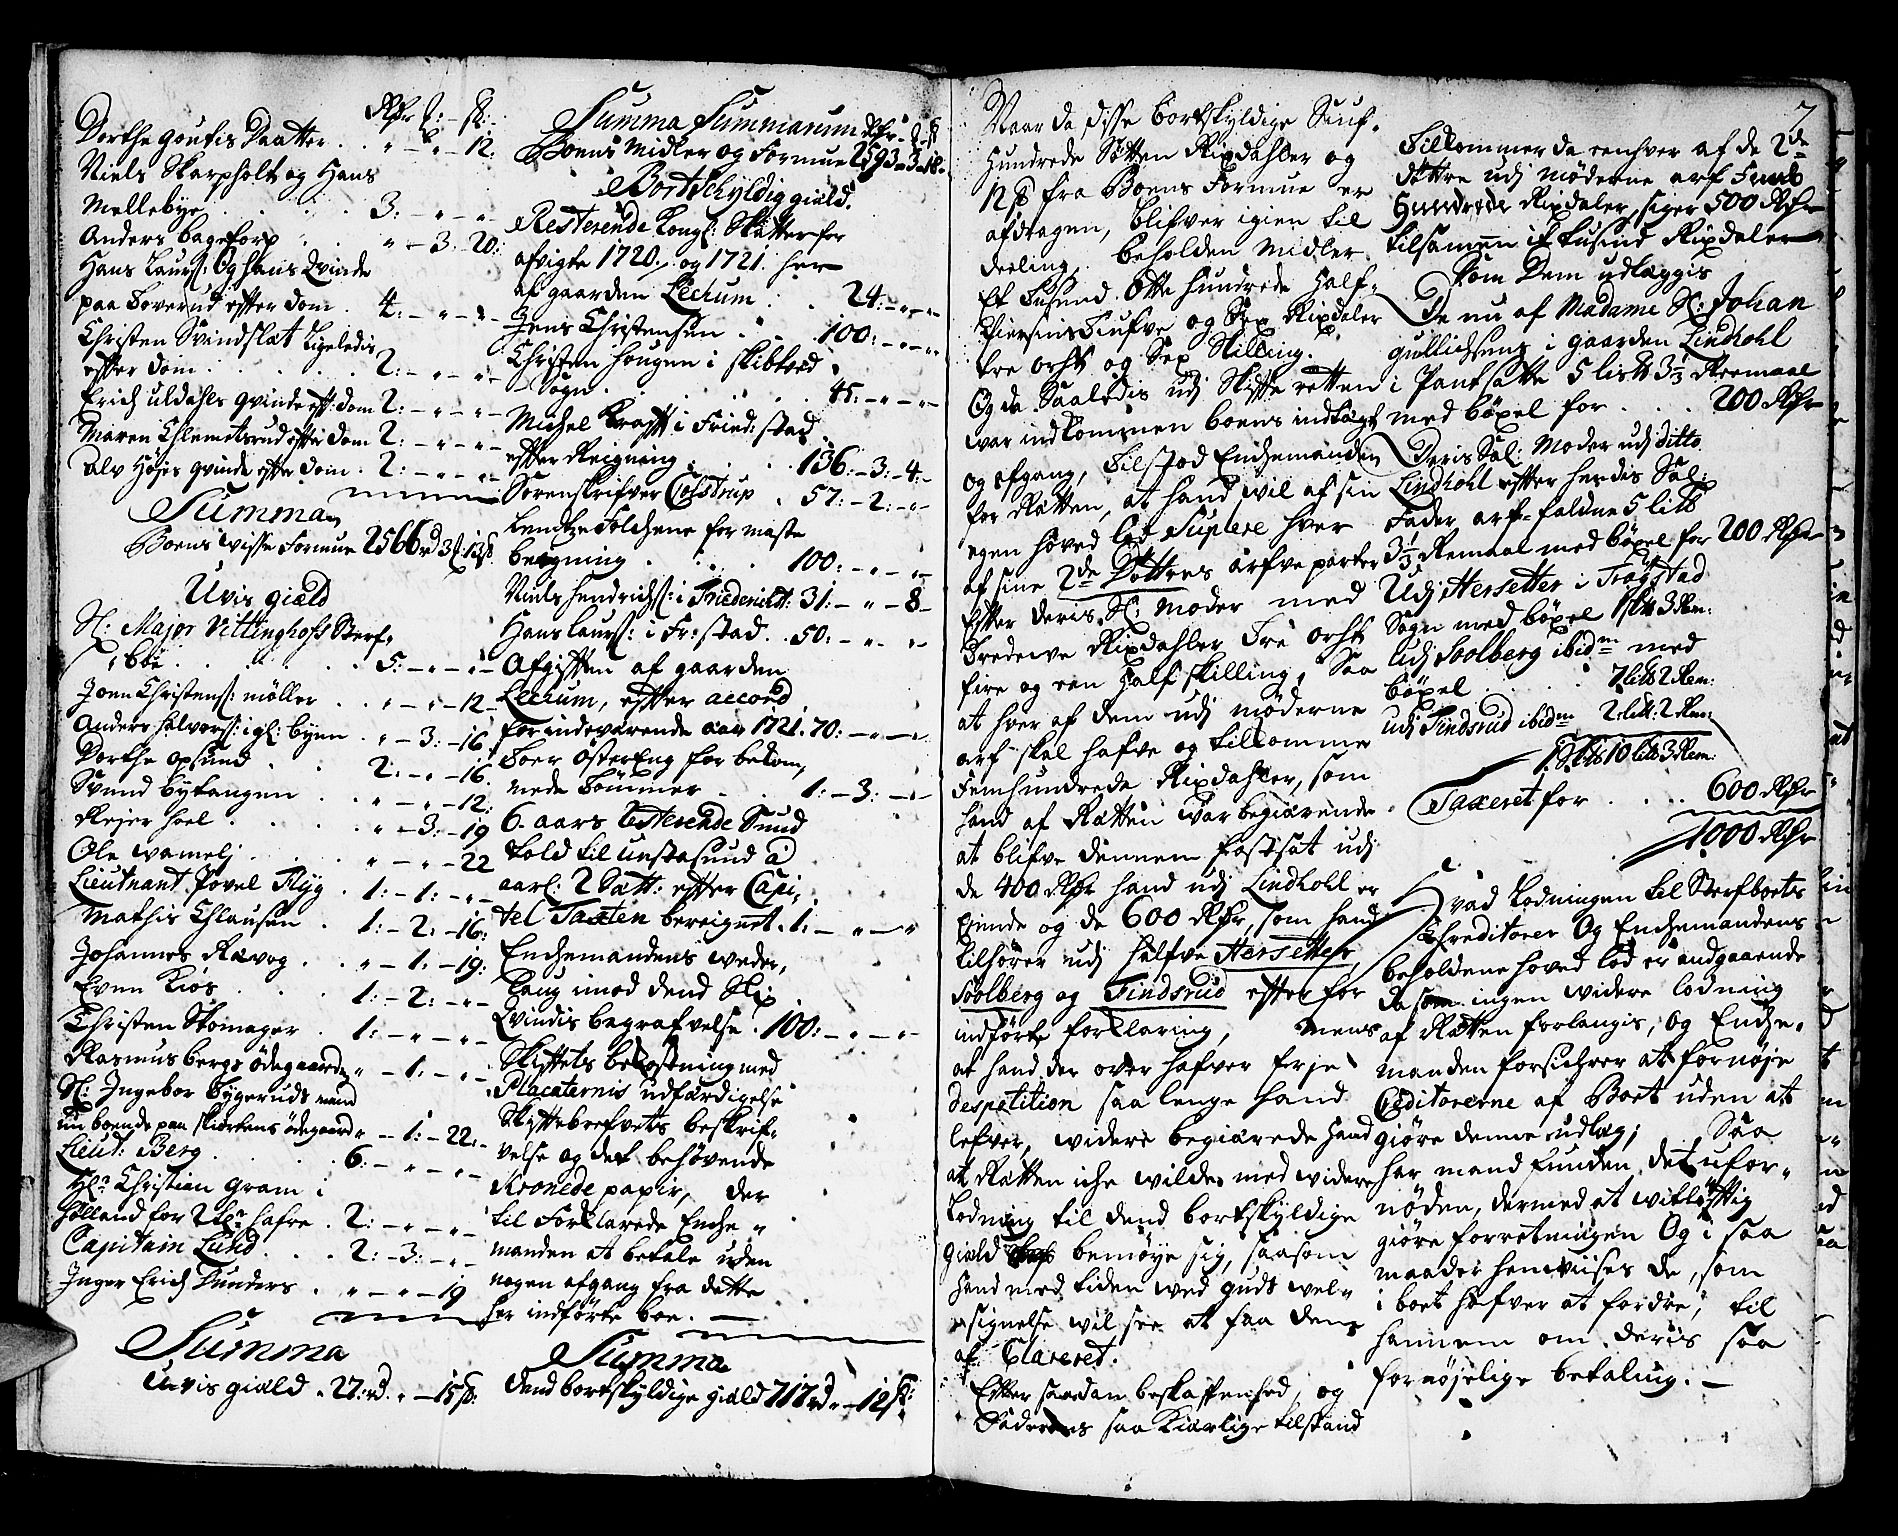 Rdr ß: – sk:
Dorthe goutis Daatter . . „ – „ – 12:
Niels Skarpholt og Hans
Mellebye . . . . 3: – „ – „ –
Anders bagetorp . . „ – 3 – 20:
Hans Laurß: Og hans Qvinde
paa Foverud efter dom . 4: – „ – „ –
Christen Svindslæt Ligeledis
efter dom . . . . 2: – „ – „ –
Erich uldahls qvinde eft: dom 2: – „ – „ –
Maren Chlemetsrud efter dom 2: – „ – „ –
Alv Höyes qvinde efter dom . 2: – „ – „ –
Summa
Boens wisse Formue 2566 rd 3ß: 13ß
Uvis giæld
Sl: Major Vittinghofs Sterf-
boe . . . . . 5: – „ – „ –
Joen Christenß: möller . . „ – „ – 12 –
Anders halvorß: i gl: byen . „ – 3: – 16
Dorthe opsund . . 2: – „ – 16
Svend bytangen . . „ – „ – 12:
Reier hoel . . . . „ – 3: – 19
Ole wamelj . . . „ – „ – 22
Lieutnant Povel Flyg . 1: – 1: – „ –
Mathis Chlausen . 1: – 2: – 16:
Johannes Revog . . „ – 1: – 19:
Even Kiös . . . 1: – 2: – „ –
Christen Skomager . 1: – „ – „ –
Rasmus bergs ödegaard „ – 1: – „ –
Sl: Ingebor bygeruds mand
nu boende paa skierkens ödegaard „ – 1: – 22:
Lieut: Berg . . . 6: – „ – „ –
Hr. Christian Gram i
Holland for 2 tr hafre . 2: – „ – „ –
Capitain Lund . . 2: – 3: – „ –
Inger Erich Lunders . „ – „ – 19
Summa
Uvis giæld . 27: rd „ – 15 ß:
Summa Summarum Rdr – ß – ß
Boens Midler og Formue 2593 – 3 – 18 –
Bort Schyldig giæld.
Resterende Kongl: Skatter for
afvigte 1720 og 1721 her
af gaarden Lechum . . 24: – „ – „ –
Jens Christensen . . 100: – „ – „ –
Christen Hougen i skibtved
Sogn . . . . . 45: – „ – „ –
Michel Krafft i Fried: stad
efter Reigning . . . 136: – 3: – 4: –
Sorenskrifver Colstrup . 57: – 2: – „ –
Lendtze Folchene for maste
bergning . . . . 100: – „ – „ –
Niels Hendrichß: i Friederichst: 31: – „ – 8 –
Hans Laurß: i Fr: stad . 50: – „ – „ –
Afgifften af gaarden
Lechum, efter accord
for indeværende aar 1721. 70: – „ – „ –
Foer ÖsterEng for bekom,
mede Tömmer . . 1: – 3: – „ –
6. aars Resterende Sund
told til unstasund à
aarl: 2 Sætt: efter Capi,
tel Taxten bereignet . 1: – „ – „
Enchemandens weder,
laug imod dend Skip
Qvindis begrafvelse . 100: – „ – „ –
Skiftets bekostning med
Placaternis udfærdigelse
Skiftebrefvets beskrif-
velse og det behövende
Kronede papir, der
til Forklarede Enche „
manden at betale uden
nogen afgang fra dette
her indförte boe. –
Summa
Dend bortskyldige giæld 717 rd „ – 12 sk:
7
Naar da disse bortskyldige Siuf-
Hundrede Sötten Rixdahler og
12 ß fra Boens Formue er
afdragen, blifver igien til
deeling, beholden midler
Et Tusend Otte hundrede Half-
fierdsinstiufve og Sex Rixdaler
tre orht og Sex Skilling.
Og da Saaledis udj Skiffte retten
war indkommen boens indtægt
og afgang, Tilstod Enchemanden
for Rætten, at hand wil af sin
egen hoved lod Suplere hver
af sine 2de Döttres arfve parter
Efter deris Sl: moder med
Tredeive Rixdahler Tre orht
fire og een half skilling, Saa
at hver af dem udj möderne
arf skal hafve og tilkomme
Femhundrede Rixdahler, som
hand af Rætten war begierende
at blifve dennem fastsat udj
de 400 Rdr hand udj Lindholl er
eyende og de 600 Rdr, som hand
tilhörer udj halfve Hersetter
Soolberg og Findsrud efter for
indförte forklaring, mens
at hand der over hafver frje
despetition saa lenge hand
lefver, widere begierede hand
at Rætten iche wilde med widere
Lodning til dend bortskyldige
giæld bemöye sig, saasom
hand med tiden ved guds vel-
signelse wil see at faa dend
af Clareret.
Efter saadan beskaffenhed, og
Faderens saa Kierlige tilstand
Tilkommer da eenhver af de 2de
döttre udj möderne arf Fem
Hundrede Rixdaler, siger 500 Rdr
tilsamen it tusind Rixdaler
Som Dem udlæggis
De nu af Madame Sl: Johan
gullichsens i gaarden Lindholl
i Pantsatte 5 lisk 3½ Remaal
med böxel for . . . 200 Rdr
Deris Sal: Moder udj ditto
Lindholl efter hendis Sal:
Fader arf-faldne 5 litt
3½ Remaal med böxel for 200 Rdr
Udj Hersetter i Trögstad
Sogn med böxel 1 skt 3 Rem:
udj Soolberg ibidm med
böxel . . . 7 litt 2 Rem:
udj Findsrud ibidm 2: litt: 2 Rem:
1 Skt 10 litt 3 Rem:
Taxeret for . . . 600 Rdr
1000 Rdr
Hvad Lodningen til Sterfboets
Chreditorer Og Enchemandens
beholdene hoved lod er andgaaende
da som ingen widere lodning
af Rætten forlangis, og Enche-
manden forsichrer at fornöje
Creditorerne af Boet uden at
giöre denne udlæg; Saa
har mand funden det ufor-
nöden, dermed at witlöftig
giöre forretningen Og i saa
maader henviises de, som
i boet hafver at fordre, til
hannem om deris saa
fornöjelige betaling. –